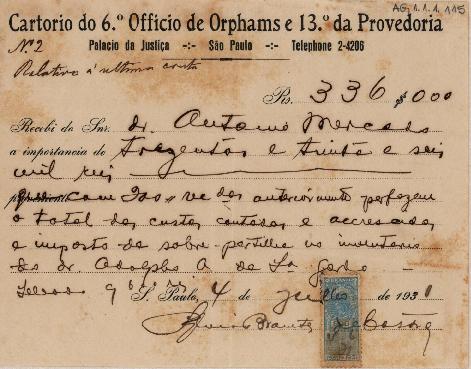 AG.1.1.1.115
Cartorio do 6.º Officio de Orphams e 13.º da Provedoria
Nº 2 Palacio da Justiça -:- São Paulo -:- Telephone 2-4206
Relativo á ultima conta
Rs. 336$000
Recebi do Snr. dr. Antonio Mercado
a importancia de Trezentos e trinta e seis
mil reis
que com recebidos anteriormente perfazem
o total das custas contadas e accrescidas
e imposto de sobre-partilha no inventario
do dr. Adolpho A. da
S. Paulo, 4 de Julho de 1931